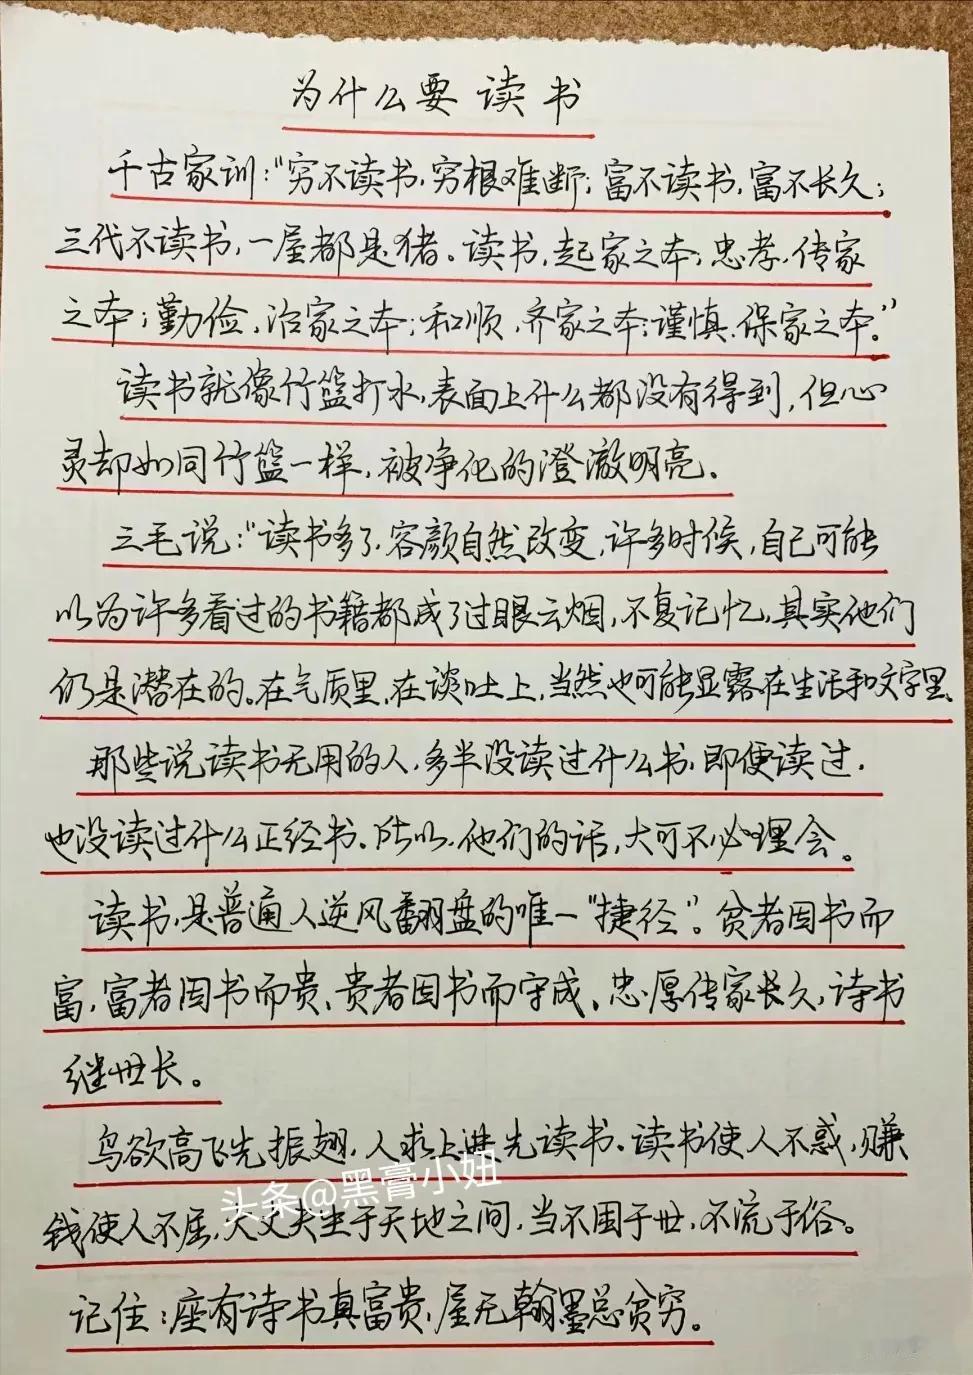 为什么要读书
千古家训:“穷不读书,穷根难断;富不读书,富不长久;
三代不读书,一屋都是猪。读书,起家之本;忠孝,传家
之本;勤俭,治家之本;和顺,齐家之本;谨慎,保家之本。”
读书就像竹篮打水,表面上什么都没有得到,但心
灵却如同竹篮一样,被净化的澄澈明亮。
三毛说:“读书多了,容颜自然改变,许多时候,自己可能
以为许多看过的书籍都成了过眼云烟,不复记忆,其实他们
仍是潜在的。在气质里,在谈吐上,当然也可能显露在生活和文字里。
那些说读书无用的人,多半没读过什么书,即便读过,
也没读过什么正经书。所以,他们的话,大可不必理会。
读书,是普通人逆风翻盘的唯一“捷径”。贫者因书而
富,富者因书而贵,贵者因书而守成。忠厚传家长久,诗书
继世长。
鸟欲高飞先振翅,人求上进先读书。读书使人不惑,赚
钱使人不屈,大丈夫生于天地之间,当不困于世,不流于俗。
记住:座有诗书真富贵,屋无翰墨总贫穷。
头条@黑膏小妞